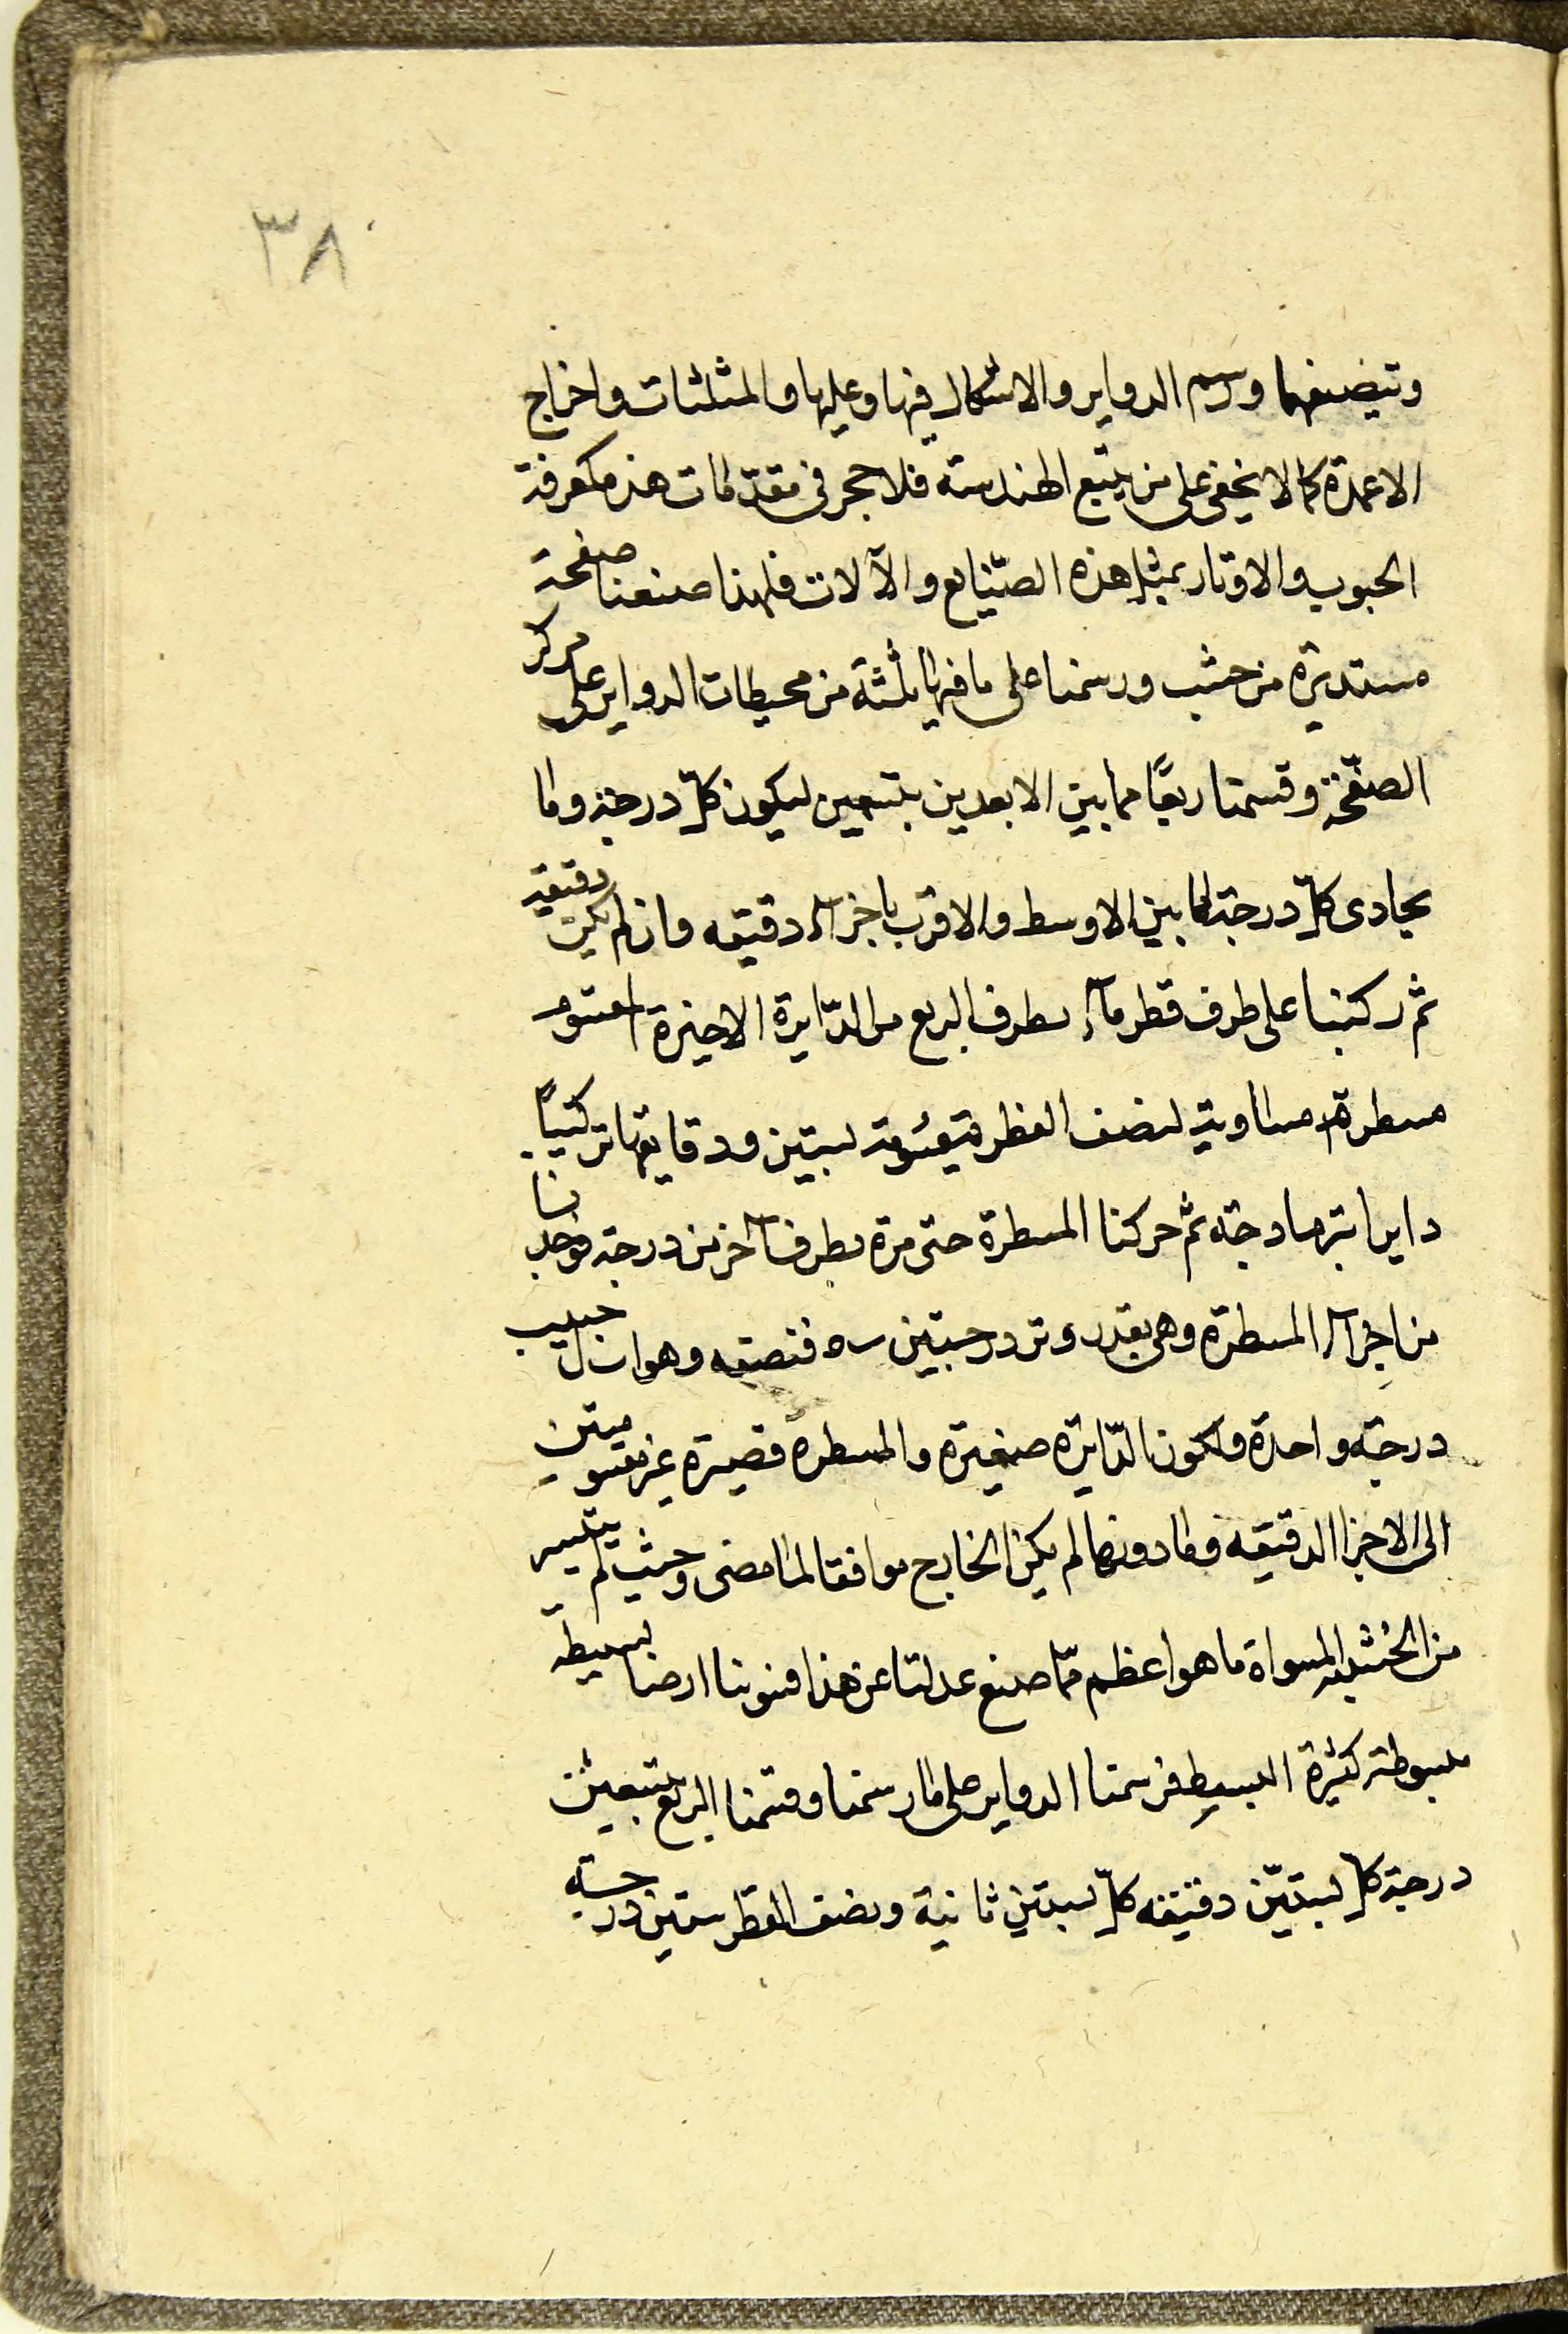 ٣٨
وتنصيفها ورسم الدواير والاشكال فيها وعليها والمثلثات واخراج
الاعمدة كما لا يخفى على من يتبع الهندسة فلا حجر فى مقدمات هذه معرفة
الجيوب والاوتار بمثل هذه الصنايع والآلات فلهذا صنعنا صفحة
مستديرة من خشب ورسمنا على مافيها ثلثة من محيطات الدواير على مركز
الصفحة وقسمنا ربعًا مما بين الابعدين بتسعين ليكون كل درجة وما
يحاذى كل درجة لما بين الاوسط والاقرب باجزاء دقيقه وان لم يكن دقيقة
ثم ركبنا على طرف قطر مآر بطرف الربع من الدايرة الاخيرة المقسومة
مسطرة مساوية لنصف القطر مقسومة بستين ودقايقها تركيبًا
دايرا ثم حركنا المسطرة حتى مرة بطرف آخر من درجة فوجدنا
من اجزآء المسطرة وهى بقدر وتر درجتين فنصفه وهو جيب
درجة واحدة ولكون الدايرة صغيرة والمسطرة قصيرة غير مقسومتين
الى الاجزا الدقيقه وما دونها لم يكن الخارج موافقا لما مضى وحيث لم يتيسر
من الخشبة المسواة ما هو اعظم مما صنع عدلنا عن هذا فسوينا ارضا بسيطة
مبسوطة كثيرة البسيط فرسمنا الدواير على ما رسمنا وقسمنا الربع بتسعين
درجة كل بستين دقيقه كل بستين ثانية ونصف القطر ستين درجة